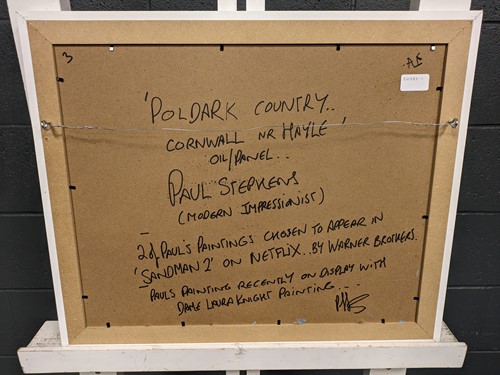 3
'POLDARK COUNTRY..
CORNWALL NR HAYLE'
OIL/PANEL..
PAUL STEPHENS
(MODERN IMPRESSIONIST)
2 of PAUL'S PAINTINGS CHOSEN TO APPEAR IN
'SANDMAN 2' ON NETFLIX...BY WARNER BROTHERS.
PAULS PAINTING RECENTLY ON DISPLAY WITH
DAME LAURA KNIGHT PAINTING....